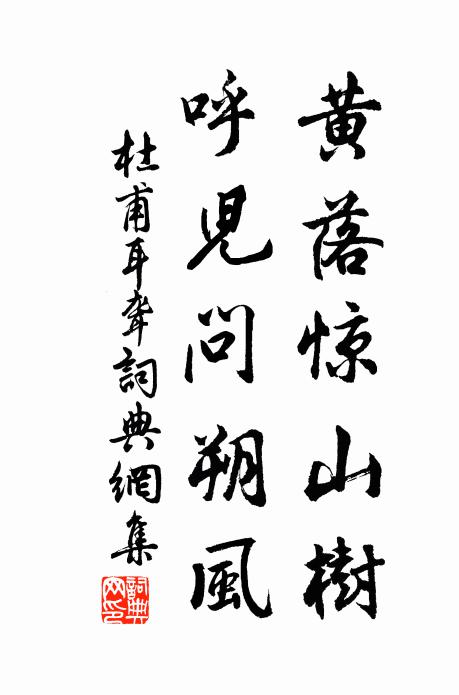 黄落惊山樹
呼児問朔風
杜甫耳聾詞典網集
詞典